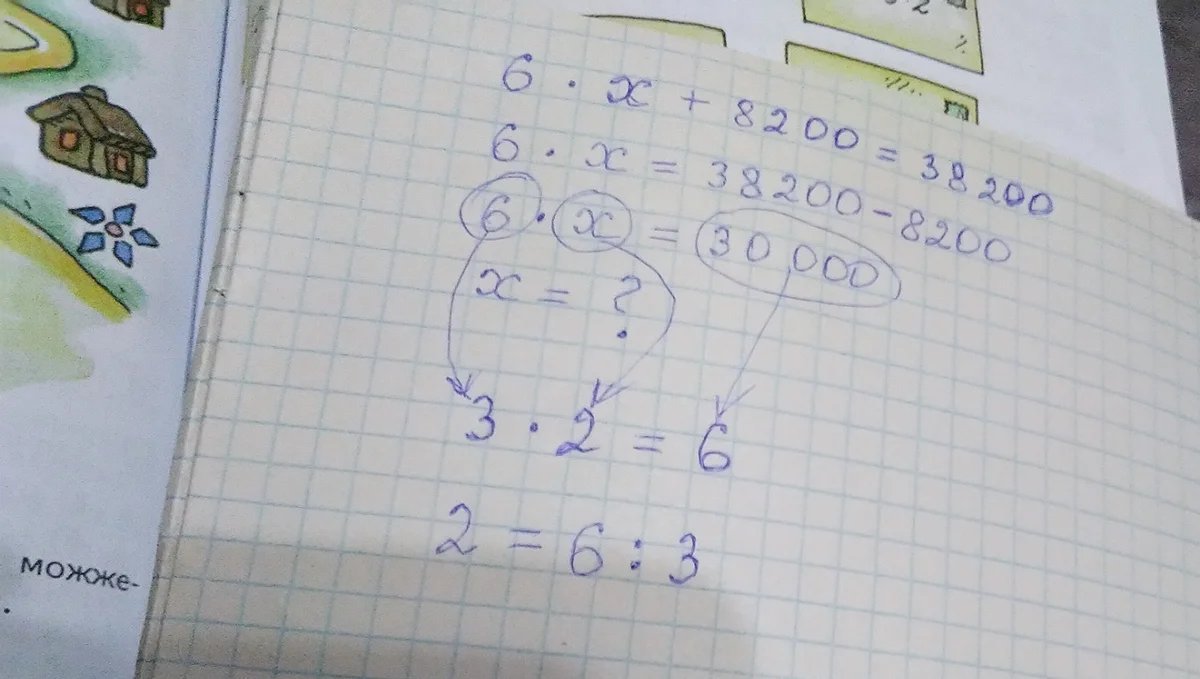 6 · x + 8200 = 38200
6 · x = 38200 - 8200
6 · x = 30 000
x = ?
3 · 2 = 6
2 = 6 : 3
можже-
.